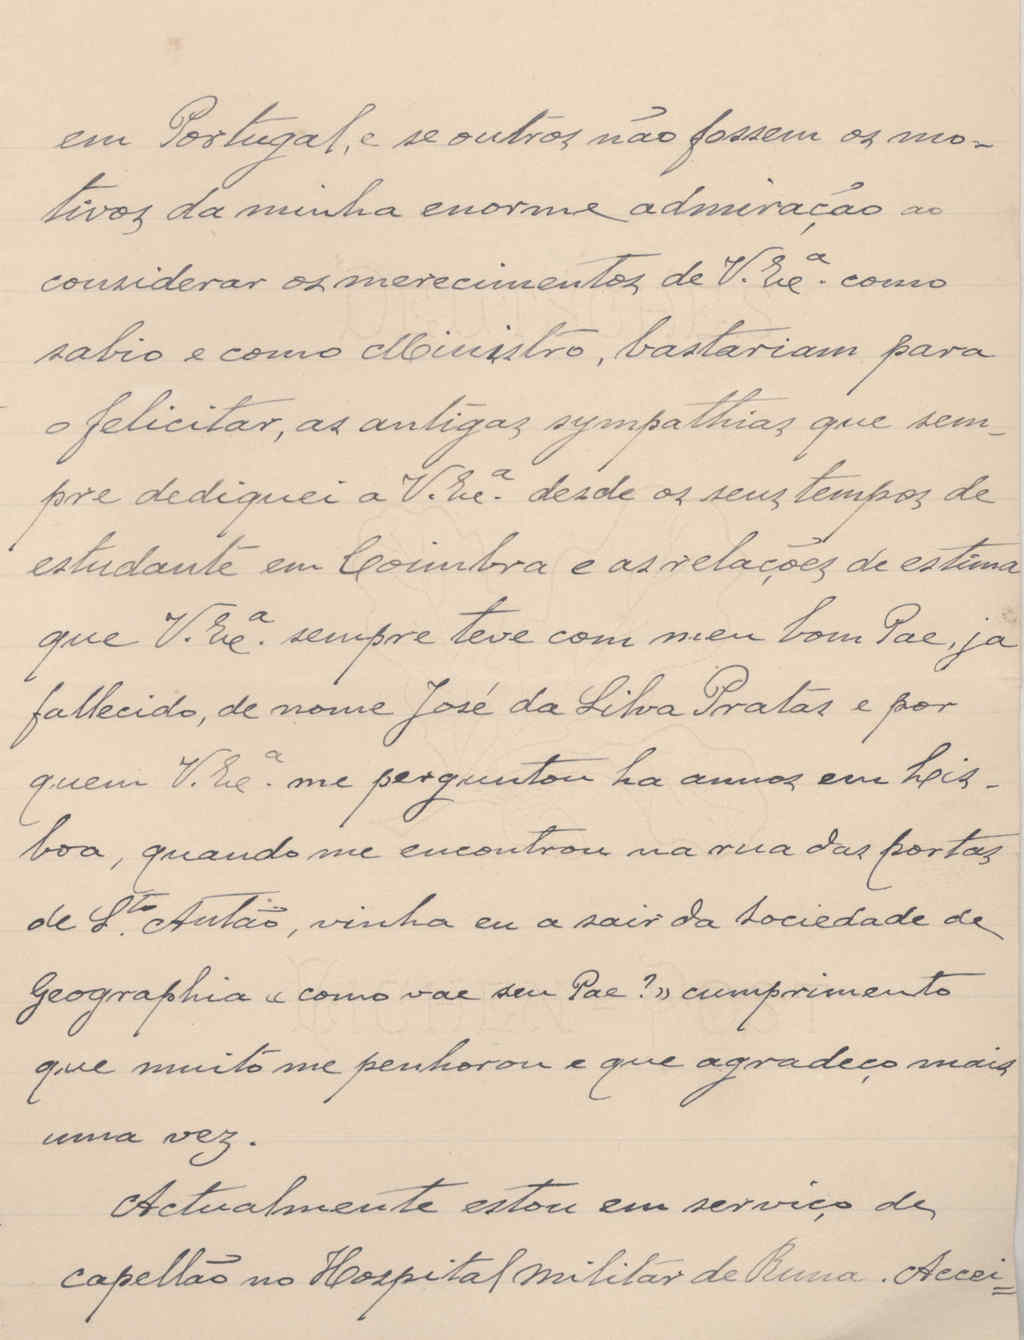 em Portugal, e se outros não fossem os mo-
tivos da minha enorme admiração ao
considerar os merecimentos de V. Exª. como
sabio e como Ministro, bastariam para
o felicitar, as antigas sympathias que sem-
pre dediquei a V. Exª. desde os seus tempos de
estudante em Coimbra e as relações de estima
que V. Exª. sempre teve com meu bom Pae, ja
fallecido, de nome José da Silva Pratas e por
quem V. Exª. me perguntou ha annos em Lis-
boa, quando me encontrou na rua das portas
de S.to Antão, vinha eu a sair da Sociedade de
Geographia « como vae seu Pae? » cumprimento
que muito me penhorou e que agradeço mais
uma vez.
Actualmente estou em serviço de
capellão no Hospital militar de Runa. Accei=